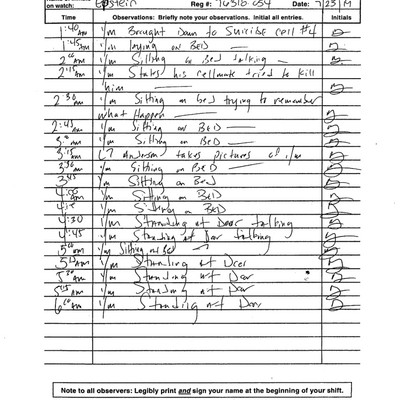 on watch): Epstein Reg #: 76318-054 Date: 7/23/19
Time Observations: Briefly note your observations. Initial all entries. Initials
1:40 Am I/m Brought Down to Suicide cell #4
1:45 Am I/m laying on BED
2:00 Am I/m Sitting on Bed talking
2:15 Am I/m States his cellmate tried to kill
him
2:30 Am I/m Sitting on bed trying to remember
what Happen
2:45 Am I/m Sitting on BED
3:00 Am I/m Sitting on BED
3:15 Am LT Anderson takes pictures of I/m
3:30 Am I/m Sitting on BED
3:45 Am I/m Sitting on Bed
4:00 Am I/m Sitting on BED
4:15 Am I/m Sitting on BED
4:30 Am I/m Standing at Door talking
4:45 Am I/m Standing at Door talking
5:00 Am I/m Sitting on Bed
5:15 Am I/m Standing at Door
5:30 Am I/m Standing at Door
5:45 Am I/m Standing at Door
6:00 Am I/m Standing at Door
Note to all observers: Legibly print and sign your name at the beginning of your shift.